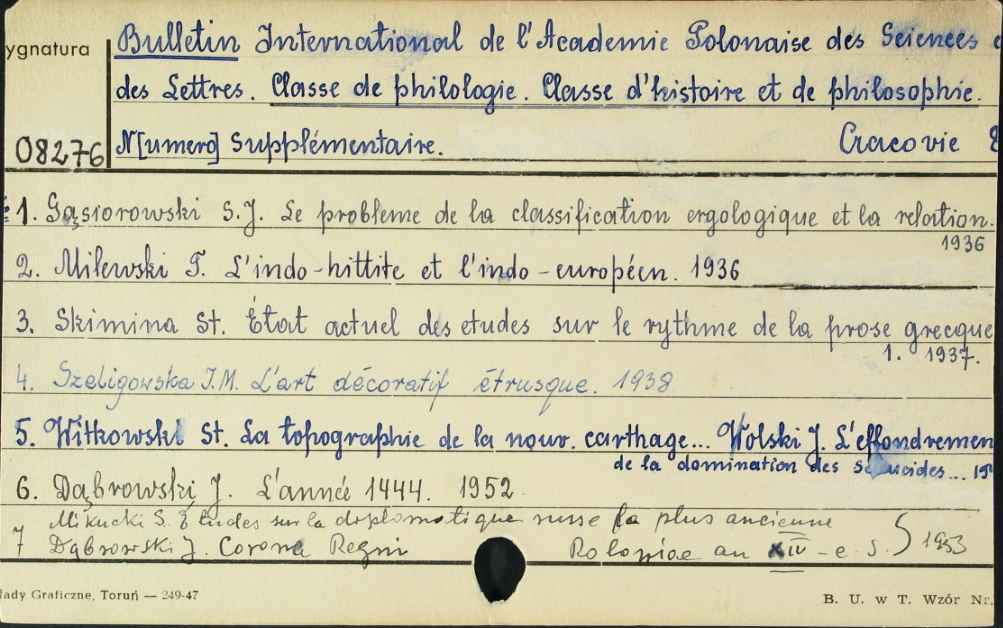 ygnatura
Bulletin International de l'Academie Polonaise des Sciences
des Lettres. Classe de philologie. Classe d'histoire et de philosophie.
08276 N[umero] Supplémentaire. Cracovie
1. Gąsiorowski S.J. Le probleme de la classification ergologique et la relation.
1936
2. Milewski T. L'indo-hittite et l'indo-européen. 1936
3. Skimina St. État actuel des etudes sur le rythme de la prose grecque
1. 1937.
4. Szeligowska J.M. L'art décoratif étrusque. 1938
5. Witkowski St. La topographie de la nouv. carthage... Wolski J. L'effondremen
de la domination des Séleucides...
6. Dąbrowski J. L'année 1444. 1952
Mikucki S. Etudes sur la diplomatique russe la plus ancienne
7 Dąbrowski J. Corona Regni Poloniae au XIV-e s. 1953
łady Graficzne, Toruń — 249-47
B. U. w T. Wzór Nr.